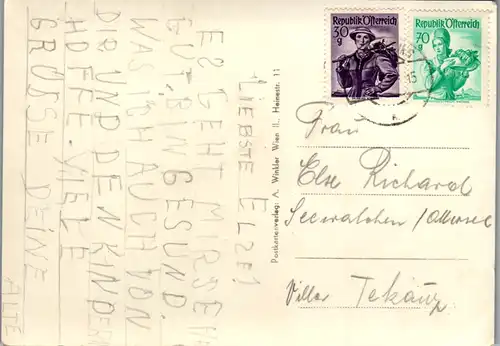 LIEBSTE ELSE!
ES GEHT MIR SEHR
GUT, BIN GESUND.
WAS ICH AUCH VON
DIR UND DEN KINDERN
HOFFE. VIELE
GRÜSSE DEINE
ALTE
Postkartenverlag: A. Winkler Wien II., Heinestr. 11
Republik Österreich
30
g
Republik Österreich
70
g
Frau
Else Richard
Seewalchen / Attersee
Villa